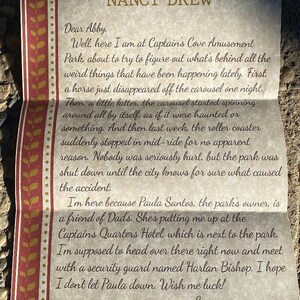 NANCY DREW
Dear Abby,
Well, here I am at Captains Cove Amusement
Park, about to try to figure out what's behind all the
weird things that have been happening lately. First,
a horse just disappeared off the carousel one night.
Then a little latter, the carousel started spinning
around all by itself, as if it were haunted or
something. And then last week, the roller coaster
suddenly stopped in mid-ride for no apparent
reason. Nobody was seriously hurt, but the park was
shut down until the city knows for sure what caused
the accident.
I'm here because Paula Santos, the parks owner, is
a friend of Dads. She's putting me up at the
Captains Quarters Hotel, which is next to the park.
I'm supposed to head over there right now and meet
with a security guard named Harlan Bishop. I hope
I dont let Paula down. Wish me luck!